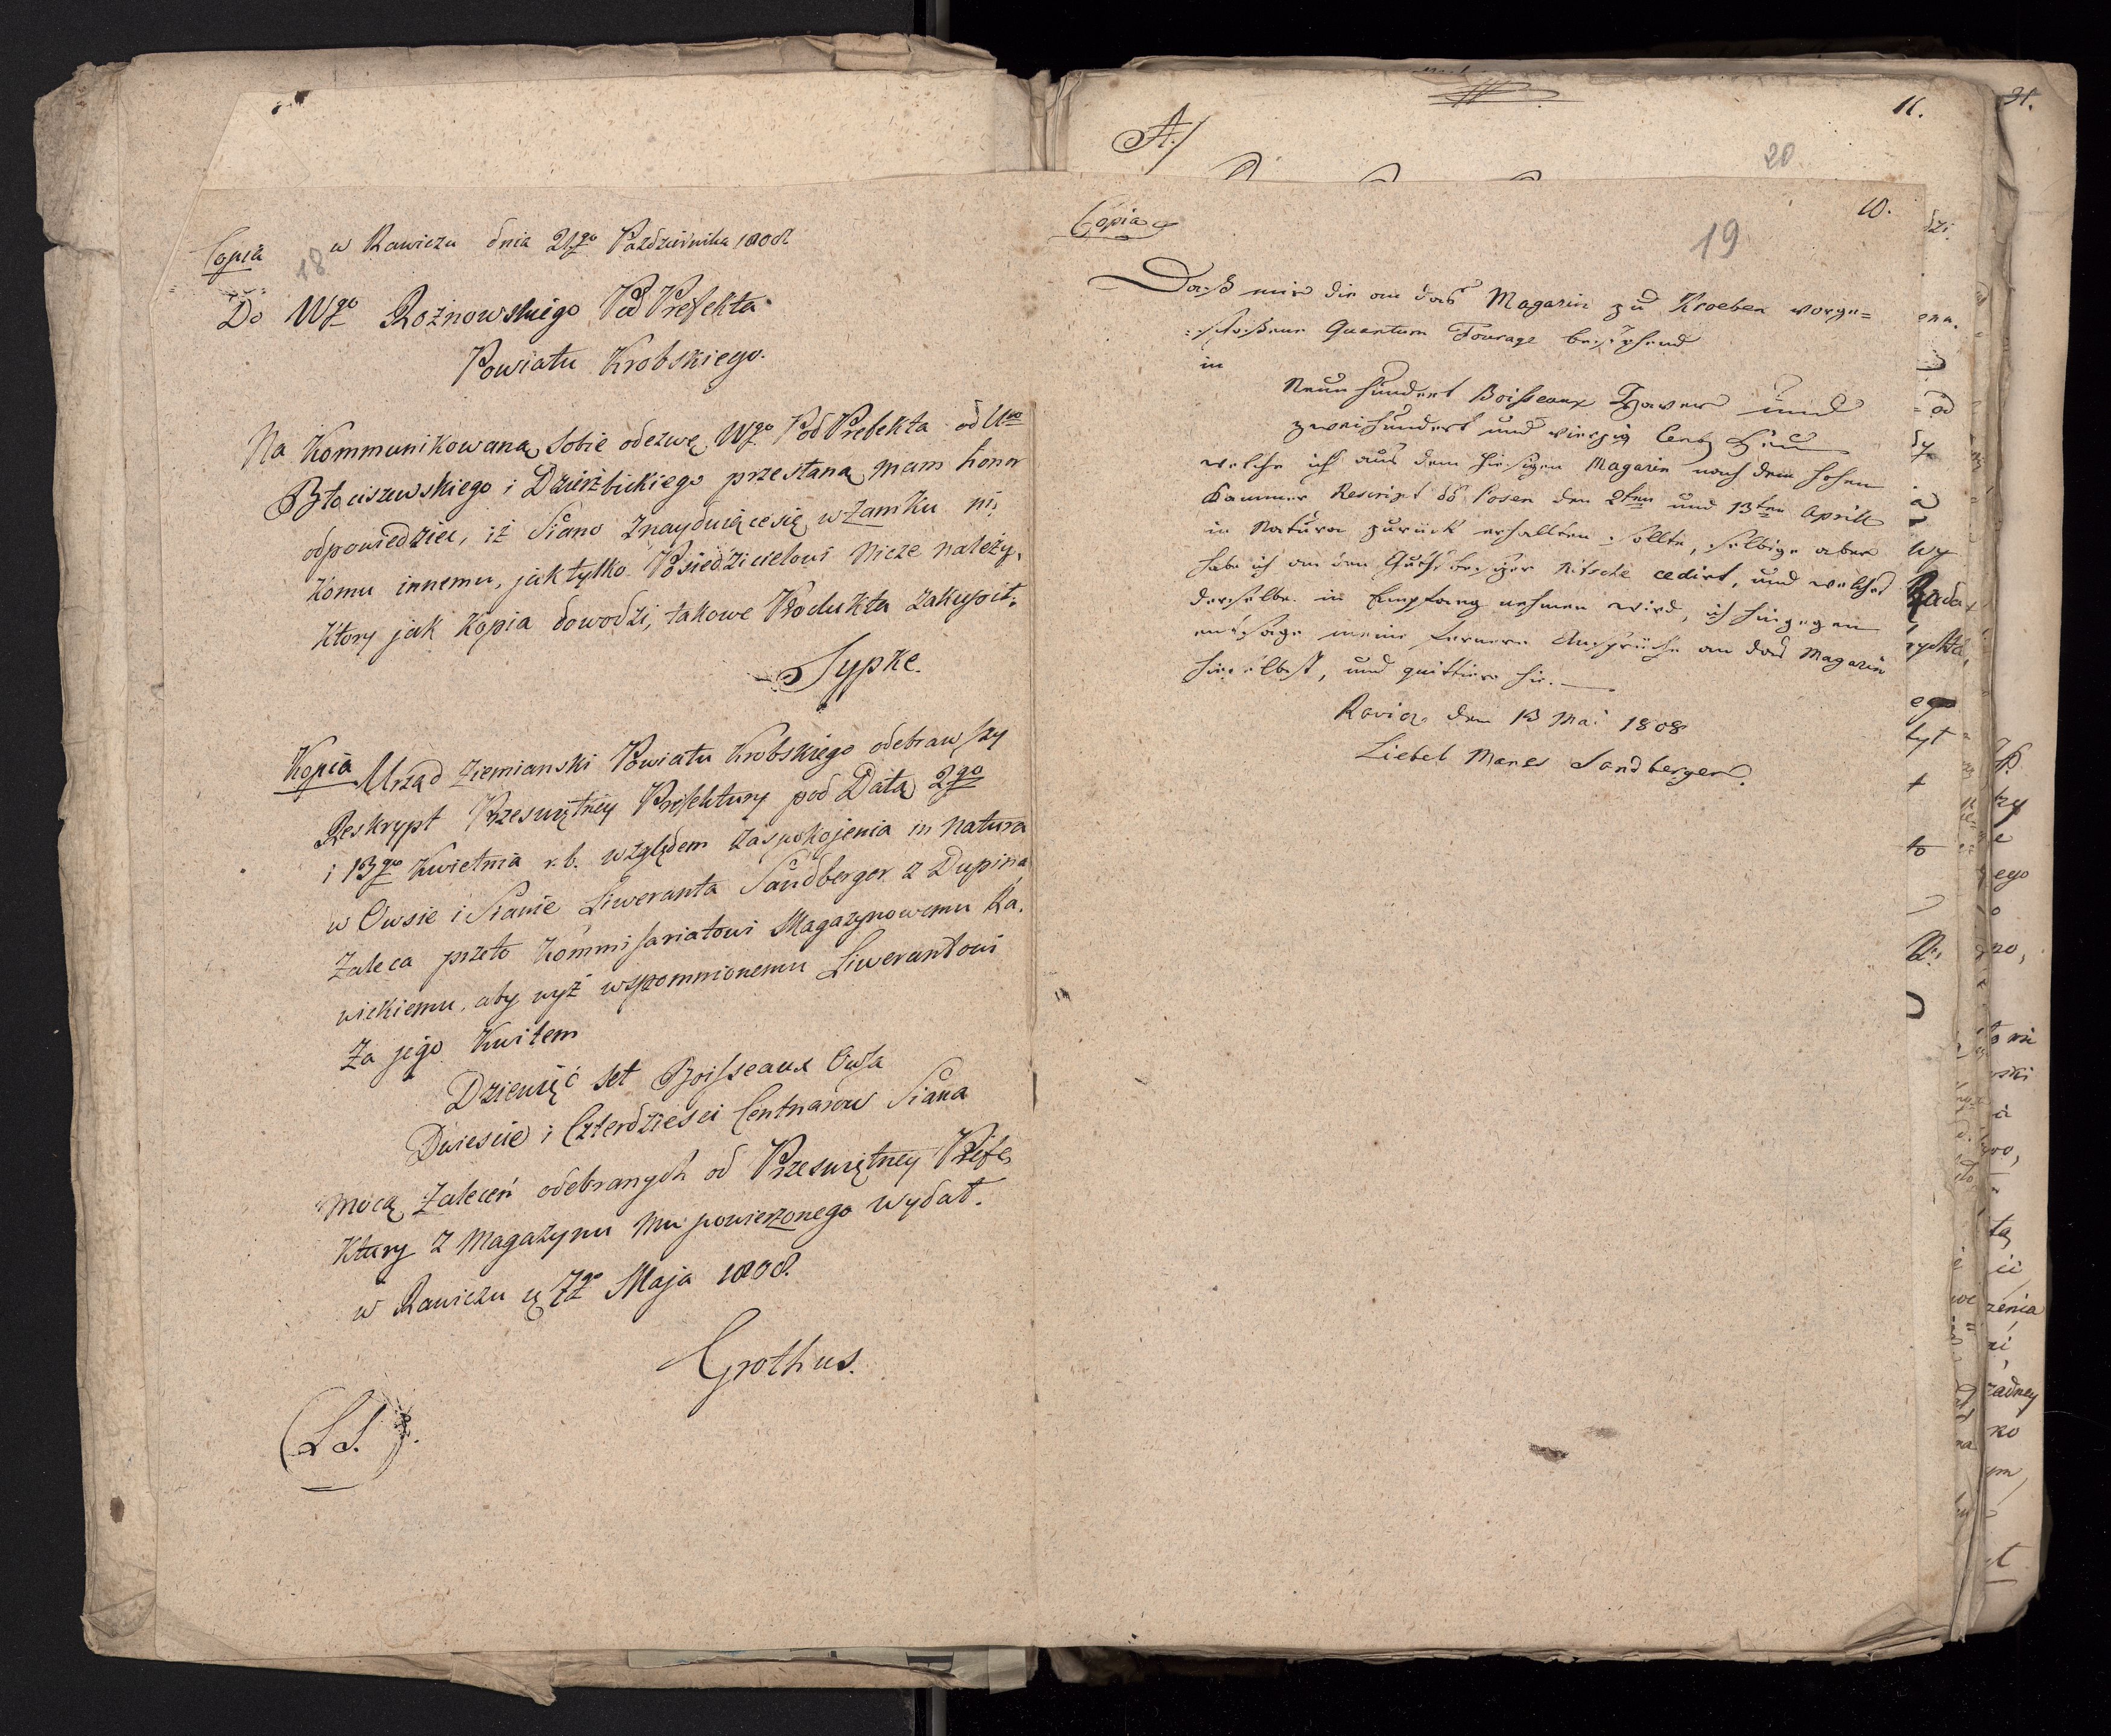 Copia w Rawiczu dnia 21go Pazdziernika 1808
18
Do Wgo Rożnowskiego PodPrefekta
Powiatu Krobskiego.
Na Kommunikowaną Sobie odezwę Wgo PodPrefekta od Ur
Błociszewskiego i Dzierzbickiego przesłaną mam honor
odpowiedziec, iż Siano znayduiące się w Zamku ni,
komu innemu, jak tylko Posiedzicielowi Nicze należy,
ktory jak Kopia dowodzi, takowe Produkta zakupił.
Sypke.
Kopia Urząd Ziemianski Powiatu Krobskiego odebrawszy
Reskrypt Przeswiętney Prefektury pod Datą 2go
i 13go Kwietnia r.b. względem zaspokojenia in natura
w Owsie i Sianie Liweranta Sandberger z Dupina
zaleca przeto Kommissariatowi Magazynowemu Ra,
wickiemu, aby wyż wspomnionemu Liwerantowi
za jego Kwitem
Dziewięć set Boisseaux Owsa
Dwiescie i Czterdziesci Centnarow Siana
mocą zaleceń odebranych od Przeswiętney Prefe,
ktury z Magazynu mu powierzonego wydał.
w Rawiczu 7go Maja 1808.
Grothus.
(L.S.).
11.
31.
A./
20.
10.
Copia
19
Daß mir die an das Magazin zu Kroeben vorge=
=schoßene Quantum Fourage bestehend
in
Neun hundert Boisseaux Haver und
zweihundert und vierzig Centr Heu
welche ich aus dem hiesigen Magazin nach dem hohen
Kammer Rescript dd Posen den 2ten und 13ten Aprill
in Natura zurück erhallten sollte, selbige aber
habe ich an den Gutsbesizer Nitsche cedirt, und welches
derselbe in Empfang nehmen wird, ich hingegen
entsage meine fernere Ansprüche an das Magazin
hieselbst, und quittire hie.
Rawicz den 13 Mai 1808
Liebel Manes Sandberger.